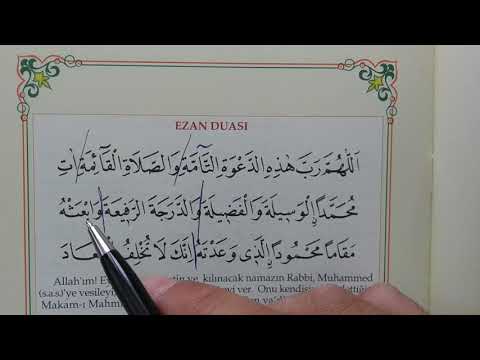 EZAN DUASI
اَللّٰهُمَّ رَبَّ هٰذِهِ الدَّعْوَةِ التَّآمَّةِ وَالصَّلَاةِ الْقَآئِمَةِ اٰتِ
مُحَمَّداً اِلْوَسٖيلَةَ وَالْفَضٖيلَةَ وَالدَّرَجَةَ الرَّفٖيعَةَ وَابْعَثْهُ
مَقَاماً مَحْمُوداً اِلَّذٖى وَعَدْتَهُ اِنَّكَ لَا تُخْلِفُ
Allah'ım! Ey ve, kılınacak namazın Rabbi, Muhammed
(s.a.s)'ye vesileyi ver. Onu kendisi
Makam-ı